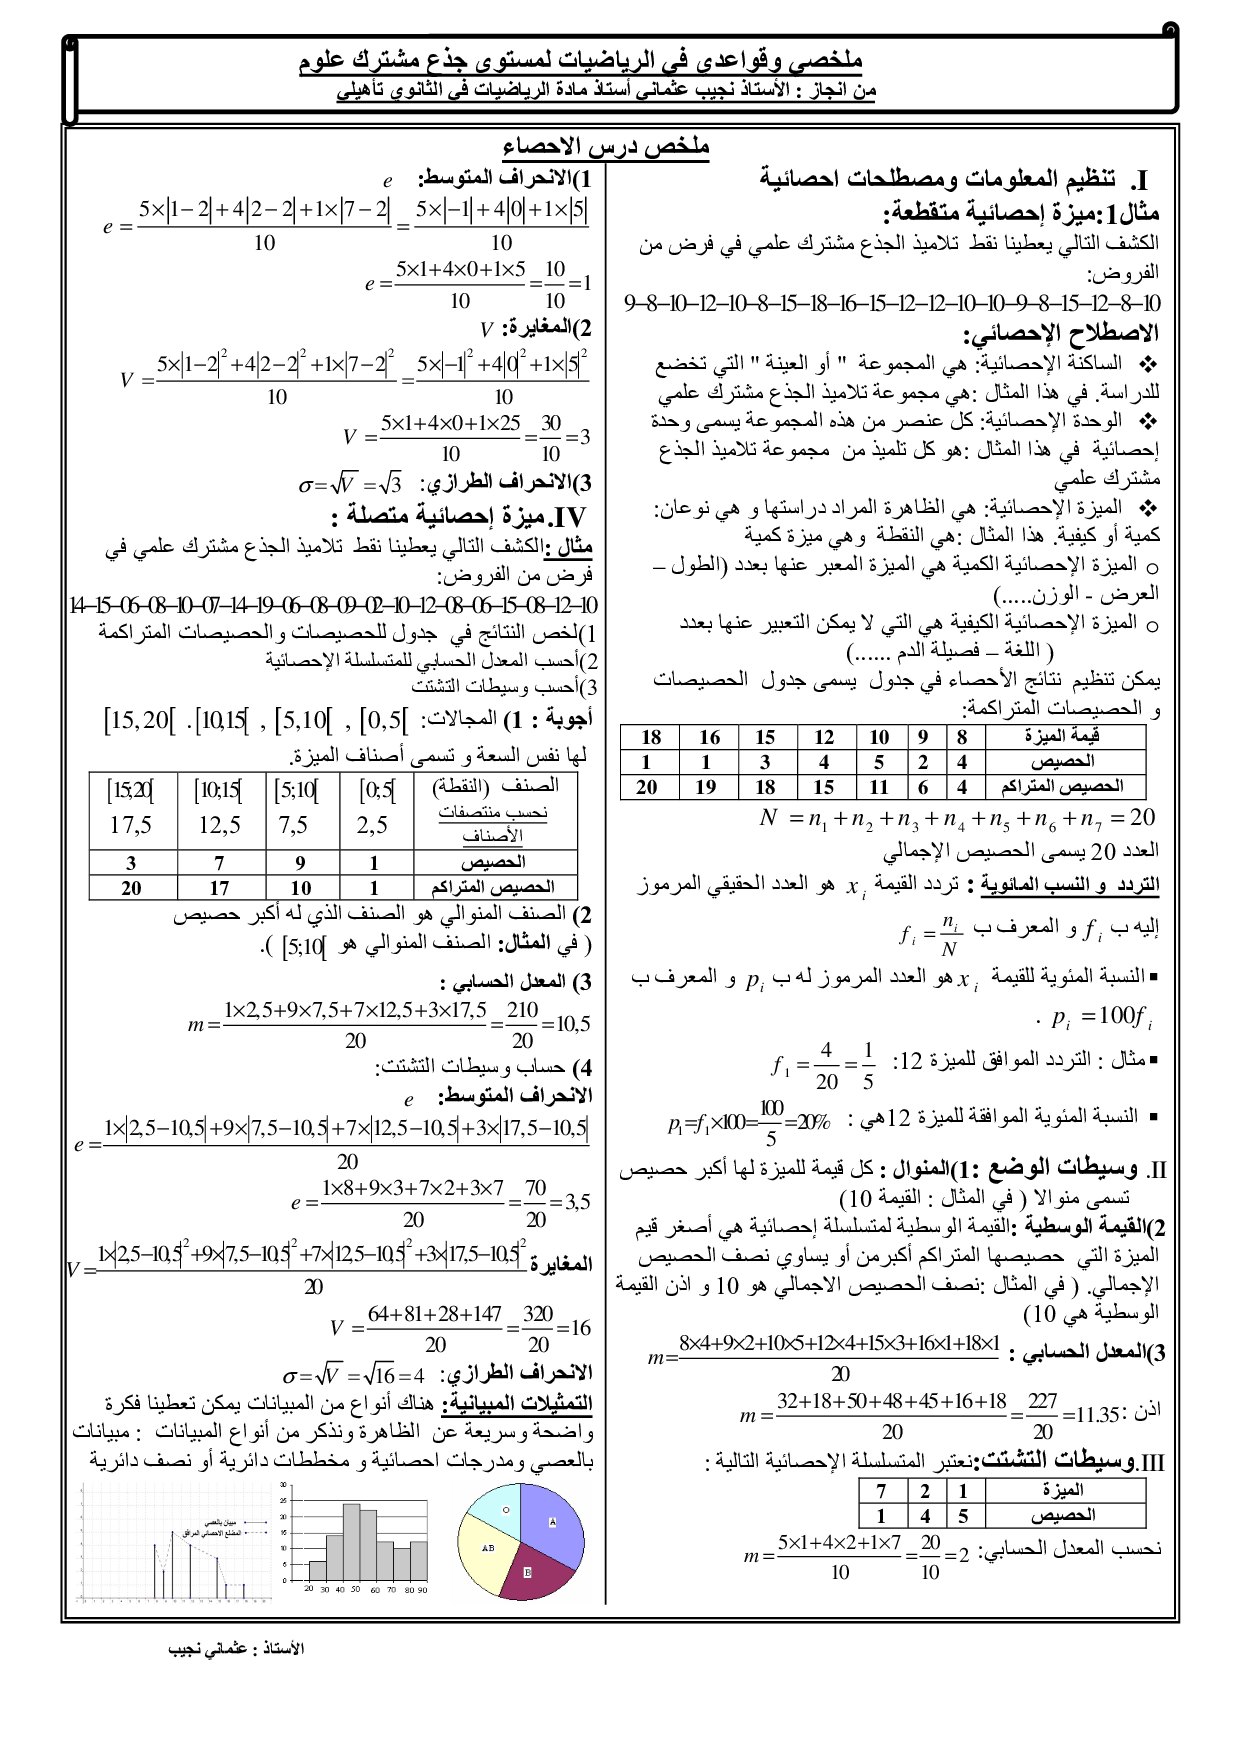 ملخصي وقواعدي في الرياضيات لمستوى جذع مشترك علوم
من انجاز : الأستاذ نجيب عثماني أستاذ مادة الرياضيات في الثانوي تأهيلي
ملخص درس الاحصاء
I. تنظيم المعلومات ومصطلحات احصائية
مثال1:ميزة إحصائية متقطعة:
الكشف التالي يعطينا نقط تلاميذ الجذع مشترك علمي في فرض من
الفروض:
9–8–10–12–10–8–15–18–16–15–12–12–10–10–9–8–15–12–8–10
الاصطلاح الإحصائي:
❖ الساكنة الإحصائية: هي المجموعة " أو العينة " التي تخضع
للدراسة. في هذا المثال :هي مجموعة تلاميذ الجذع مشترك علمي
❖ الوحدة الإحصائية: كل عنصر من هذه المجموعة يسمى وحدة
إحصائية في هذا المثال :هو كل تلميذ من مجموعة تلاميذ الجذع
مشترك علمي
❖ الميزة الإحصائية: هي الظاهرة المراد دراستها و هي نوعان:
كمية أو كيفية. هذا المثال :هي النقطة وهي ميزة كمية
o الميزة الإحصائية الكمية هي الميزة المعبر عنها بعدد (الطول –
العرض - الوزن.....)
o الميزة الإحصائية الكيفية هي التي لا يمكن التعبير عنها بعدد
( اللغة – فصيلة الدم ......)
يمكن تنظيم نتائج الأحصاء في جدول يسمى جدول الحصيصات
و الحصيصات المتراكمة:
قيمة الميزة 8 9 10 12 15 16 18
الحصيص 4 2 5 4 3 1 1
الحصيص المتراكم 4 6 11 15 18 19 20
N = n1 + n2 + n3 + n4 + n5 + n6 + n7 = 20
العدد 20 يسمى الحصيص الإجمالي
التردد و النسب المائوية : تردد القيمة xi هو العدد الحقيقي المرموز
إليه ب fi و المعرف ب fi = ni/N
▪ النسبة المئوية للقيمة xi هو العدد المرموز له ب pi و المعرف ب
pi = 100fi .
▪ مثال : التردد الموافق للميزة 12: f1 = 4/20 = 1/5
▪ النسبة المئوية الموافقة للميزة 12هي : p1=f1×100=100/5=20%
II. وسيطات الوضع :1)المنوال : كل قيمة للميزة لها أكبر حصيص
تسمى منوالا ( في المثال : القيمة 10)
2)القيمة الوسطية :القيمة الوسطية لمتسلسلة إحصائية هي أصغر قيم
الميزة التي حصيصها المتراكم أكبرمن أو يساوي نصف الحصيص
الإجمالي. ( في المثال :نصف الحصيص الاجمالي هو 10 و اذن القيمة
الوسطية هي 10)
3)المعدل الحسابي : m=(8×4+9×2+10×5+12×4+15×3+16×1+18×1)/20
اذن : m = (32+18+50+48+45+16+18)/20 = 227/20 =11.35
III.وسيطات التشتت:نعتبر المتسلسلة الإحصائية التالية :
الميزة 1 2 7
الحصيص 5 4 1
نحسب المعدل الحسابي: m = (5×1+4×2+1×7)/10 = 20/10 = 2
1)الانحراف المتوسط: e
e = (5×|1−2|+4|2−2|+1×|7−2|)/10 = (5×|−1|+4|0|+1×|5|)/10
e = (5×1+4×0+1×5)/10 = 10/10 = 1
2)المغايرة: V
V = (5×|1−2|²+4|2−2|²+1×|7−2|²)/10 = (5×|−1|²+4|0|²+1×|5|²)/10
V = (5×1+4×0+1×25)/10 = 30/10 = 3
3)الانحراف الطرازي: σ=√V = √3
IV.ميزة إحصائية متصلة :
مثال :الكشف التالي يعطينا نقط تلاميذ الجذع مشترك علمي في
فرض من الفروض:
14–15–06–08–10–07–14–19–06–08–09–02–10–12–08–06–15–08–12–10
1)لخص النتائج في جدول للحصيصات والحصيصات المتراكمة
2)أحسب المعدل الحسابي للمتسلسلة الإحصائية
3)أحسب وسيطات التشتت
أجوبة : 1) المجالات: [0,5[ , [5,10[ , [10,15[ . [15,20[
لها نفس السعة و تسمى أصناف الميزة.
الصنف (النقطة) [0;5[ [5;10[ [10;15[ [15;20[
نحسب منتصفات الأصناف 2,5 7,5 12,5 17,5
الحصيص 1 9 7 3
الحصيص المتراكم 1 10 17 20
2) الصنف المنوالي هو الصنف الذي له أكبر حصيص
( في المثال: الصنف المنوالي هو [5;10[ ).
3) المعدل الحسابي :
m = (1×2,5+9×7,5+7×12,5+3×17,5)/20 = 210/20 = 10,5
4) حساب وسيطات التشتت:
الانحراف المتوسط: e
e = (1×|2,5−10,5|+9×|7,5−10,5|+7×|12,5−10,5|+3×|17,5−10,5|)/20
e = (1×8+9×3+7×2+3×7)/20 = 70/20 = 3,5
المغايرة V = (1×|2,5−10,5|²+9×|7,5−10,5|²+7×|12,5−10,5|²+3×|17,5−10,5|²)/20
V = (64+81+28+147)/20 = 320/20 = 16
الانحراف الطرازي: σ=√V = √16 = 4
التمثيلات المبيانية: هناك أنواع من المبيانات يمكن تعطينا فكرة
واضحة وسريعة عن الظاهرة ونذكر من أنواع المبيانات : مبيانات
بالعصي ومدرجات احصائية و مخططات دائرية أو نصف دائرية
مبيان بالعصي
المضلع الاحصائي المرافق
30
25
20
15
10
5
0
20 30 40 50 60 70 80 90
O
A
AB
B
الأستاذ : عثماني نجيب